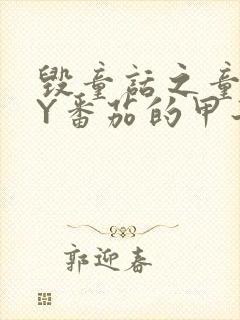 毁童话之童
Y番茄的甲
郭迎春